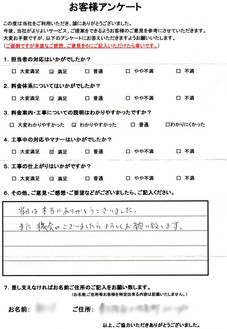 お客様アンケート
この度は当社をご利用いただき、誠にありがとうございました。
今後、当社がよりよいサービス、ご提案をできるようお客様のご意見を参考にさせていただきます。
大変お手数ですが、以下のアンケートにお答えいただきますようお願いいたします。
(ご面倒ですが率直なご感想、ご意見をBにご記入いただけたら幸いです。)
1. 担当者の対応はいかがでしたか?
□ 大変満足 ☑ 満足 □ 普通 □ やや不満 □ 不満
2. 料金体系についてはいかがでしたか?
□ 大変満足 ☑ 満足 □ 普通 □ やや不満 □ 不満
3. 料金案内・工事についての説明はわかりやすかったですか?
□ 大変わかりやすかった ☑ わかりやすかった □ 普通 □ わかりにくかった
4. 工事中の対応やマナーはいかがでしたか?
□ 大変満足 ☑ 満足 □ 普通 □ やや不満 □ 不満
5. 工事の仕上がりはいかがでしたか?
□ 大変満足 ☑ 満足 □ 普通 □ やや不満 □ 不満
6. その他、ご意見・ご感想・ご要望などがございましたら、ご記入ください。
本当にありがとうございました。
また機会がございましたらよろしくお願い致します。
7. 差し支えなければお名前ご住所のご記入をお願い致します。
(お名前、ご住所等お客様を特定出来る内容は掲載いたしません。)
お名前:
ご住所:
以上、ご協力いただきありがとうございました。